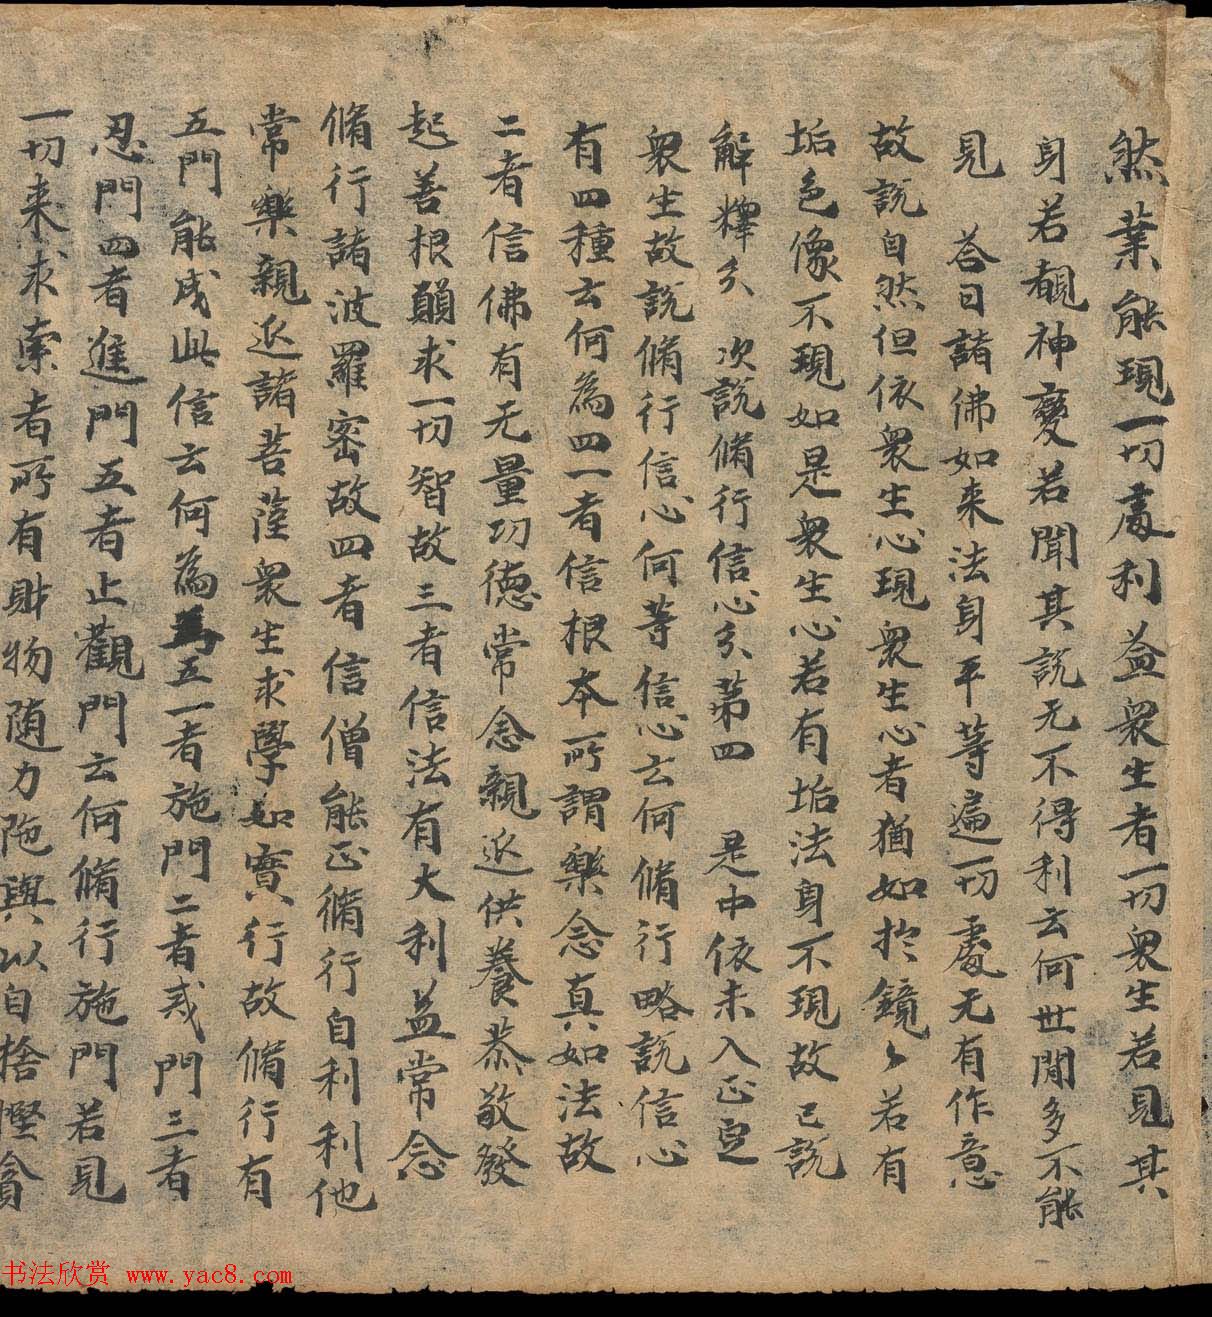 然業能現一切處利益衆生者一切衆生若見其
身若覩神變若聞其說无不得利云何世閒多不能
見 荅曰諸佛如来法身平等遍一切處无有作意
故說自然但依衆生心現衆生心者猶如於鏡々若有
垢色像不現如是衆生心若有垢法身不現故已說
解釋分 次說脩行信心分第四 是中依未入正定
衆生故說脩行信心何等信心云何脩行略說信心
有四種云何為四一者信根本所謂樂念真如法故
二者信佛有无量功德常念親近供養恭敬發
起善根願求一切智故三者信法有大利益常念
脩行諸波羅蜜故四者信僧能正脩行自利利他
常樂親近諸菩薩衆生求學如實行故脩行有
五門能成此信云何為五一者施門二者戒門三者
忍門四者進門五者止觀門云何脩行施門若見
一切来求索者所有財物随力施與以自捨慳貪
书法欣赏 www.yac8.com